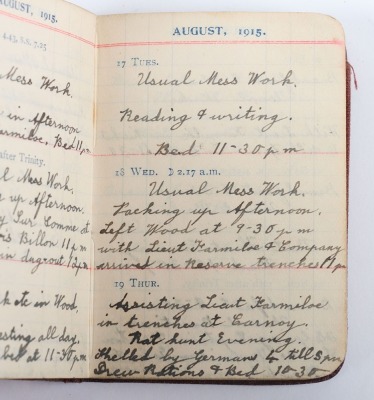 AUGUST, 1915.
4.43, s.s. 7.25
Mess Work.
in Afternoon
Karmiloe, Bed 11 pm
after Trinity.
Mess Work.
up Afternoon.
Sur Comme at
Billon 11 pm
dugout 12 pm
etc in Wood.
resting all day.
bed at 11-30 pm
AUGUST, 1915.
17 TUES.
Usual Mess Work.
Reading & writing.
Bed 11-30 p m
18 WED. ☽ 2.17 a.m.
Usual Mess Work.
Packing up Afternoon.
Left Wood at 7-30 p m
with Lieut Karmiloe & Company
arrived in Reserve trenches 11 pm
19 THUR.
Assisting Lieut Karmiloe
in trenches at Carnoy.
Rat hunt Evening.
Shelled by Germans 4 till 8 pm
Drew Rations & Bed 10-30